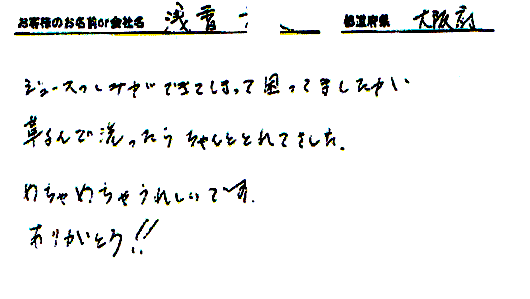 お客様のお名前or会社名 浅香 都道府県 大阪府
ジュースのしみができてしまって困ってましたが
革るんで洗ったらちゃんととれてました。
めちゃめちゃうれしいです。
ありがとう!!